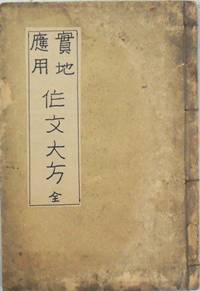 實地
應用
作文大方
全